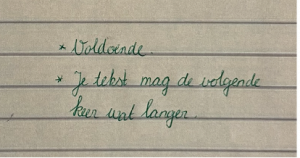 * Voldoende.
* Je tekst mag de volgende
keer wat langer.